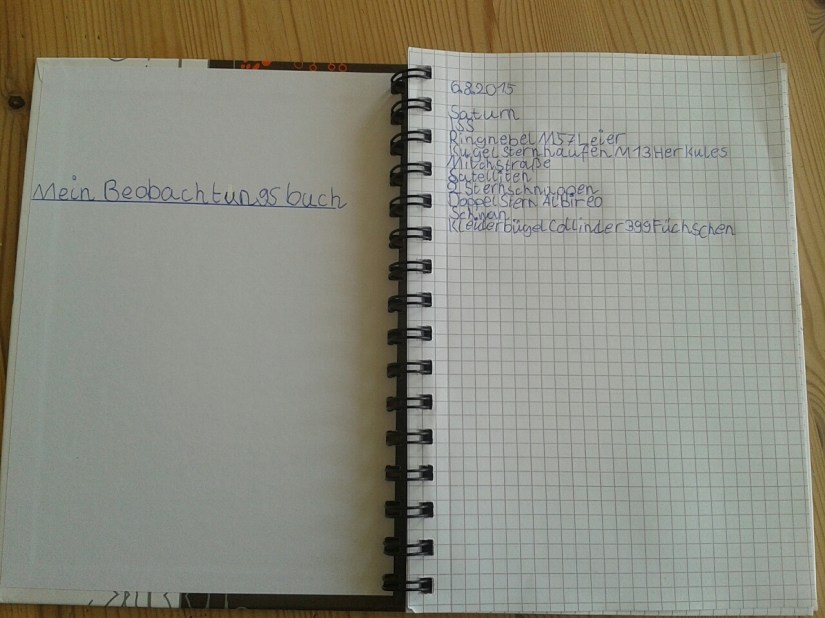 Mein Beobachtungsbuch
6.8.2015
Saturn
ISS
Ringnebel M57 Leier
Kugelsternhaufen M13 Herkules
Milchstraße
Satelliten
2 Sternschnuppen
Doppelstern Albireo
Schwan
Kleiderbügel Collinder 399 Füchschen